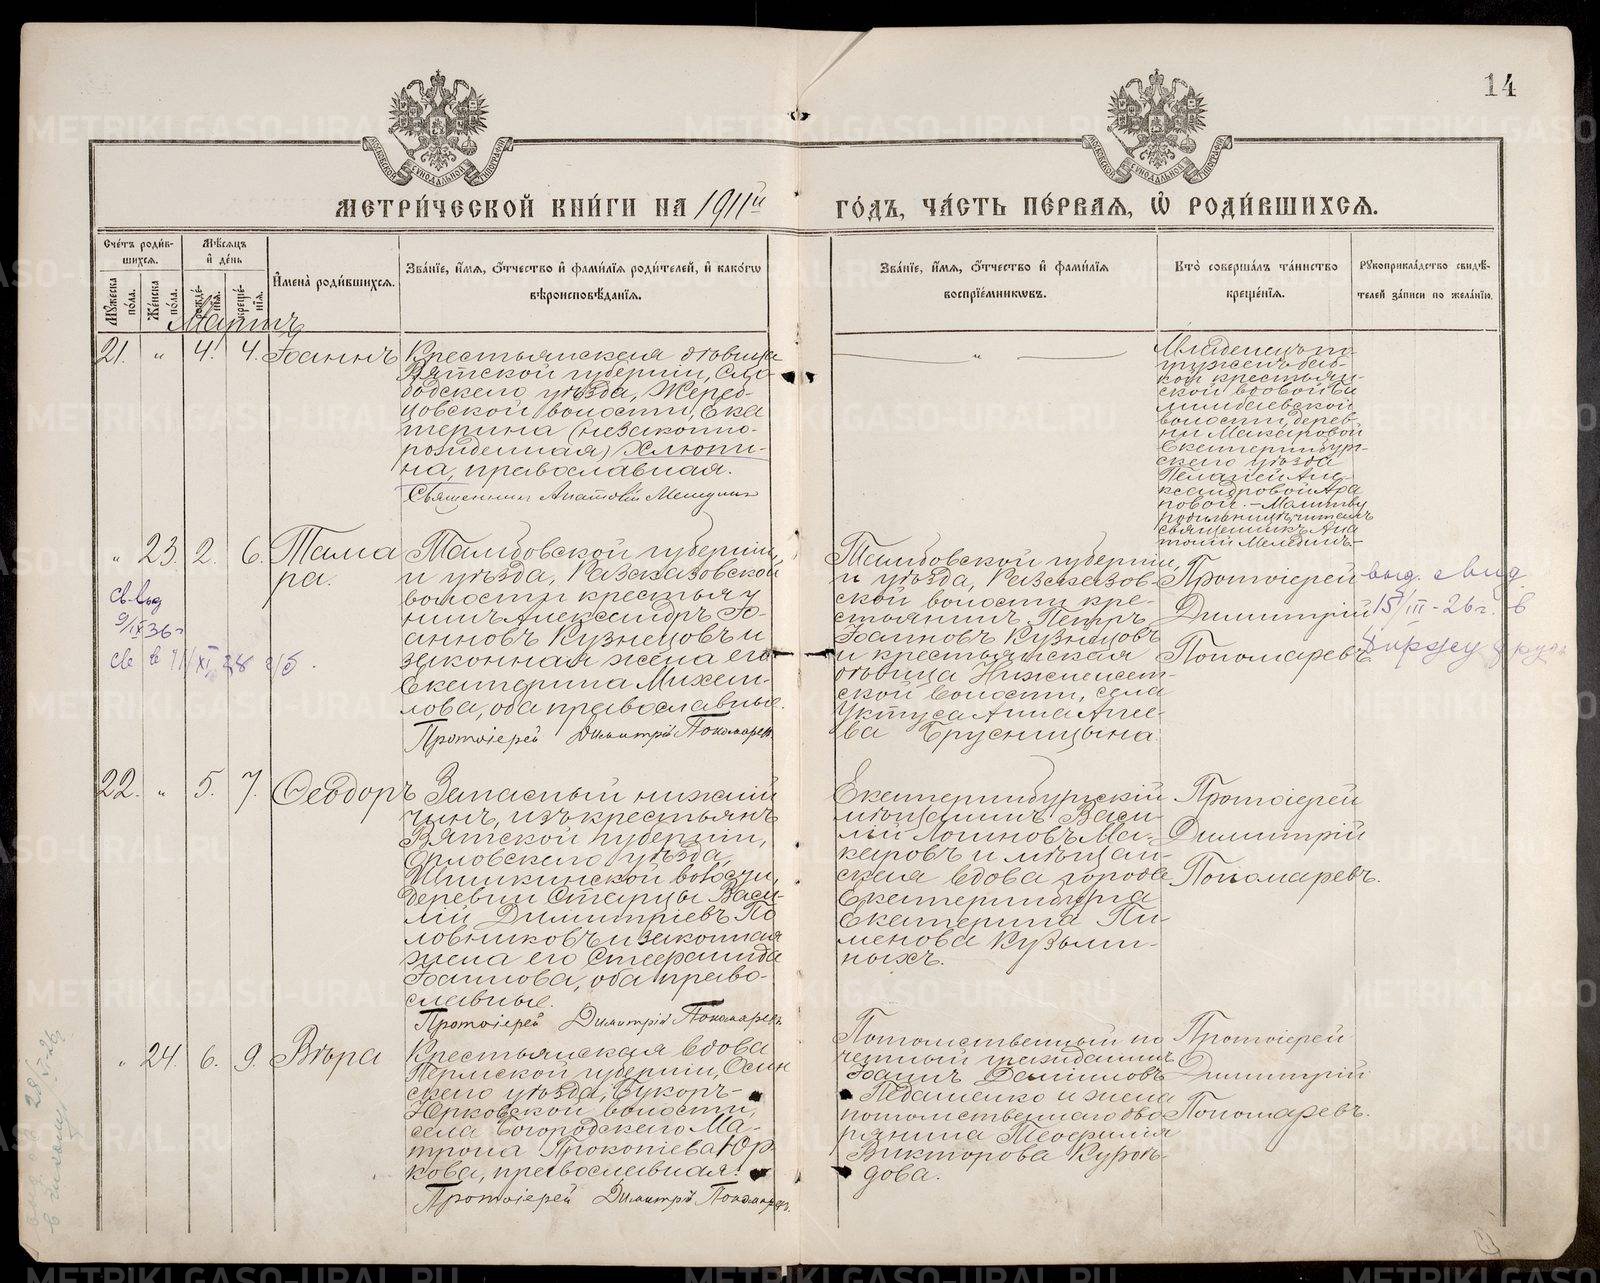 14
МОСКОВСКОЙ СѴНОДАЛЬНОЙ ТИПОГРАФІИ
МОСКОВСКОЙ СѴНОДАЛЬНОЙ ТИПОГРАФІИ
МЕТРИ́ЧЕСКОЙ КНИ́ГИ НА 1911й ГО́ДЪ, ЧА́СТЬ ПЕ́РВАЯ, Ѡ РОДИ́ВШИХСЯ.
Сче́тъ роди́в-
шихся.
Мꙋ́жеска пола.
Же́нска пола.
Мѣ́сяцъ
и҆ де́нь
рожде́-
нїя.
креще́-
нїя.
И҆мена̀ роди́вшихся.
Зва́нїе, и҆́мя, ѻ҆́тчество и҆ фами́лїя роди́телей, и҆ како́гѡ
вѣроисповѣ́данїя.
Зва́нїе, и҆́мя, ѻ҆́тчество и҆ фами́лїя
воспрїе́мникѡвъ.
Кто̀ соверша́лъ та́инство
креще́нїя.
Рꙋкоприкла́дство свидѣ́-
телей за́писи по жела́нїю.
Мартъ
21. " 4. 4. Іоаннъ
Крестьянская дѣвица
Вятской губерніи, Сло-
бодского уѣзда, Жереб-
цовской волости, Ека
терина (незаконно-
рожденная) Хлюпи-
на, православная.
Священникъ Анатолій Мелединъ
"
Младенецъ по-
груженъ баб-
кой крестьян-
ской вдовой Би
лимбаевской
волости, дерев-
ни Макаровой
Екатеринбург-
скаго уѣзда
Пелагіей Але-
ксандровой Ара
повой. - Молитву
родильницѣ читалъ
священникъ Ана
толій Мелединъ.
" 23. 2. 6. Тама
ра.
Тамбовской губерніи
и уѣзда, Разсказовской
волости крестьяни
нъ Александръ Іо-
анновъ Кузнецовъ и
законная жена его
Екатерина Михаи-
лова, оба православные.
Протоіерей Димитрій Пономаревъ
Тамбовской губерніи,
и уѣзда, Разсказов-
ской волости кре-
стьянинъ Петръ
Іоанновъ Кузнецовъ
и крестьянская
дѣвица Нижнеисет-
ской волости, села
Уктуса Анна Алек-
ва Брусницына.
Протоіерей
Димитрій
Пономаревъ
выд. свид
15/III - 26 г. в
св. выд
9/IX 36 г
22. " 5. 7. Ѳеодоръ
Запасный нижній
чинъ, изъ крестьянъ
Вятской губерніи,
Орловскаго уѣзда,
Шишкинской волости,
деревни Старцы Васи-
лій Димитріевъ По
ловниковъ и законная
жена его Серафима
Іоаннова, оба право-
славные.
Протоіерей Димитрій Пономаревъ
Екатеринбургскій
мѣщанинъ Васи-
лій Логиновъ Ма-
каровъ и мѣщан-
ская вдова города
Екатеринбурга
Екатерина Пи-
менова Кузьми-
ныхъ.
Протоіерей
Димитрій
Пономаревъ.
" 24. 6. 9. Вѣра
Крестьянская вдова
Пермской губерніи, Осин
скаго уѣзда, Букоръ-
Юрковской волости,
села Богородскаго Ма-
трона Прокопіева Юр-
кова, православная.
Протоіерей Димитрій Пономаревъ.
Потомственный по
четный гражданинъ
Іоаннъ Даніиловъ
Педашенко и жена
потомственнаго дво
рянина Теофилія
Викторова Куроѣ-
дова.
Протоіерей
Димитрій
Пономаревъ.
METRIKI.GASO-URAL.RU